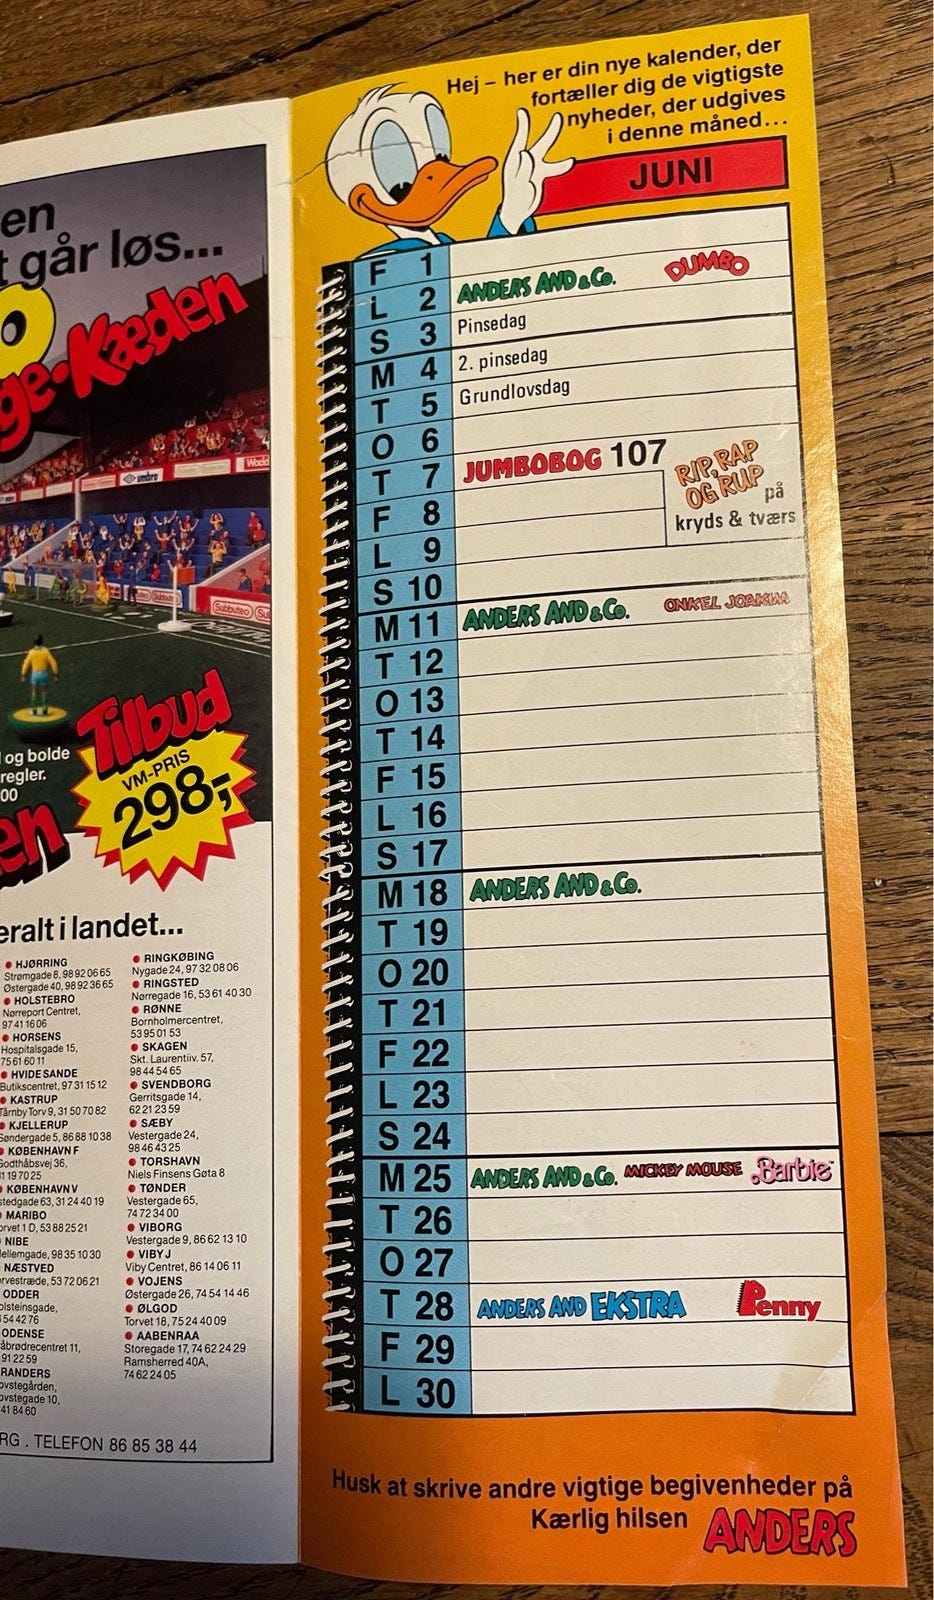 en
går løs...
ge-Kæden
umbro
World
Subbuteo
Tilbud
VM-PRIS
298,-
og bolde
regler.
00
en
eralt i landet...
HJØRRING
Strømgade 8, 98 92 06 65
Østergade 40, 98 92 36 65
HOLSTEBRO
Nørreport Centret,
97 41 16 06
HORSENS
Hospitalsgade 15,
75 61 60 11
HVIDE SANDE
Butikscentret, 97 31 15 12
KASTRUP
Tårnby Torv 9, 31 50 70 82
KJELLERUP
Søndergade 5, 86 88 10 38
KØBENHAVN F
Godthåbsvej 36,
31 19 70 25
KØBENHAVN V
stedgade 63, 31 24 40 19
MARIBO
orvet 1 D, 53 88 25 21
NIBE
ellemgade, 98 35 10 30
NÆSTVED
rvestræde, 53 72 06 21
ODDER
olsteinsgade,
54 42 76
ODENSE
åbrødrecentret 11,
91 22 59
RANDERS
ovstegården,
ovstegade 10,
41 84 60
RINGKØBING
Nygade 24, 97 32 08 06
RINGSTED
Nørregade 16, 53 61 40 30
RØNNE
Bornholmercentret,
53 95 01 53
SKAGEN
Skt. Laurentiiv. 57,
98 44 54 65
SVENDBORG
Gerritsgade 14,
62 21 23 59
SÆBY
Vestergade 24,
98 46 43 25
TORSHAVN
Niels Finsens Gøta 8
TØNDER
Vestergade 65,
74 72 34 00
VIBORG
Vestergade 9, 86 62 13 10
VIBY J
Viby Centret, 86 14 06 11
VOJENS
Østergade 26, 74 54 14 46
ØLGOD
Torvet 18, 75 24 40 09
AABENRAA
Storegade 17, 74 62 24 29
Ramsherred 40A,
74 62 24 05
RG . TELEFON 86 85 38 44
Hej – her er din nye kalender, der
fortæller dig de vigtigste
nyheder, der udgives
i denne måned...
JUNI
F 1
L 2 ANDERS AND & Co. DUMBO
S 3 Pinsedag
M 4 2. pinsedag
T 5 Grundlovsdag
O 6
T 7 JUMBOBOG 107 RIP, RAP
OG RUP på
kryds & tværs
F 8
L 9
S 10
M 11 ANDERS AND & Co. ONKEL JOAKIM
T 12
O 13
T 14
F 15
L 16
S 17
M 18 ANDERS AND & Co.
T 19
O 20
T 21
F 22
L 23
S 24
M 25 ANDERS AND & Co. MICKEY MOUSE Barbie
T 26
O 27
T 28 ANDERS AND EKSTRA Penny
F 29
L 30
Husk at skrive andre vigtige begivenheder på
Kærlig hilsen ANDERS